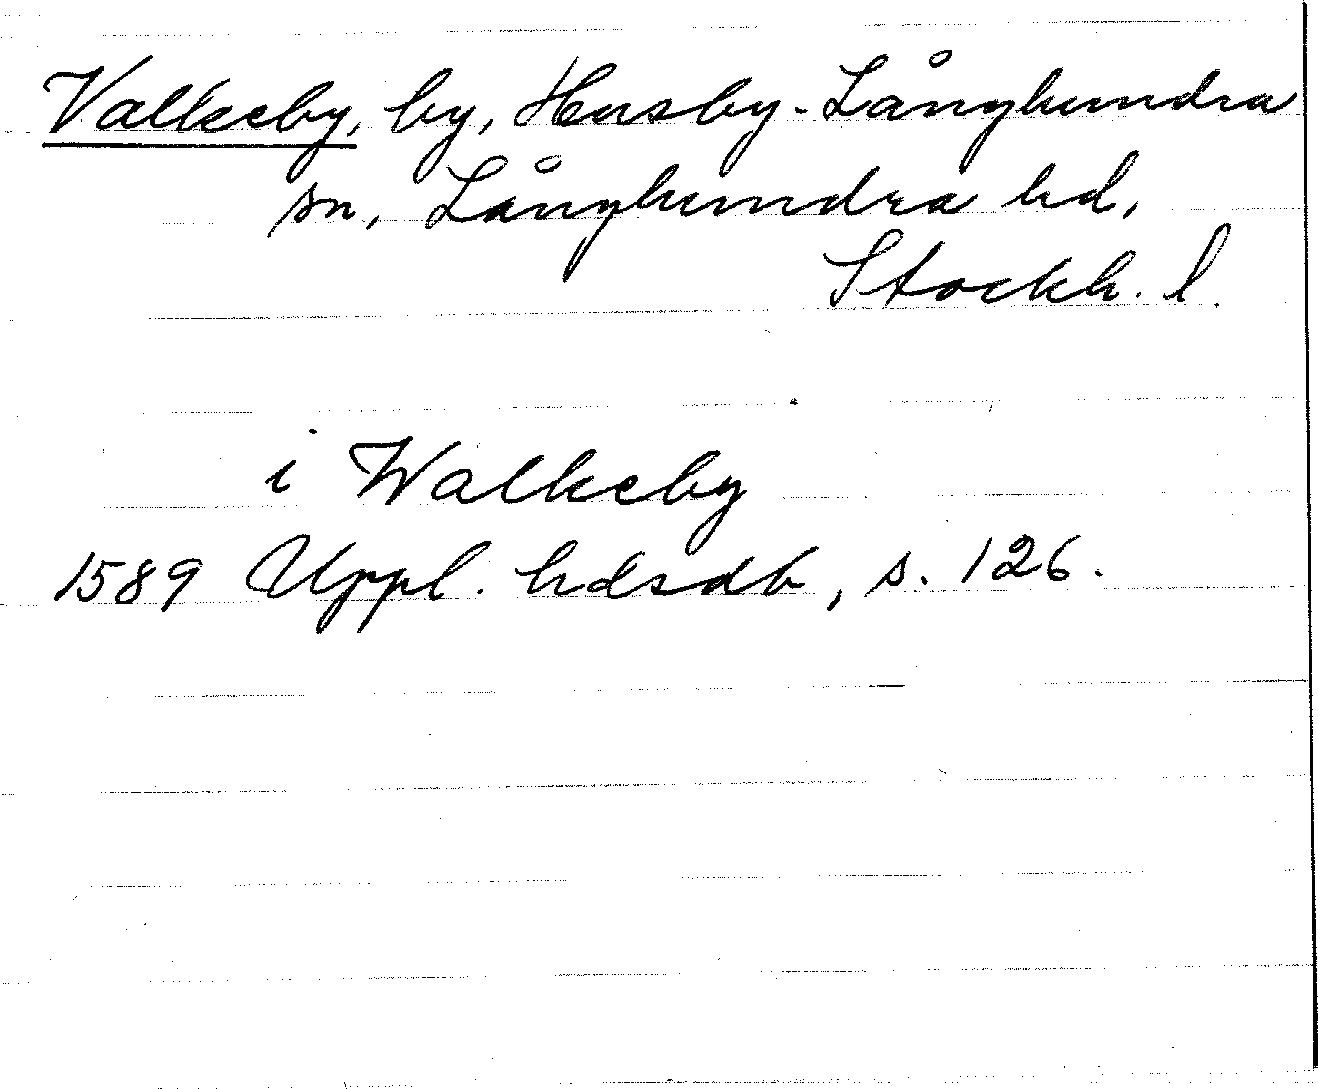 Valkeby, by, Husby-Långhundra
sn, Långhundra hd,
Stockh. l.
i Walkeby
1589 Uppl. hdsdb, s. 126.